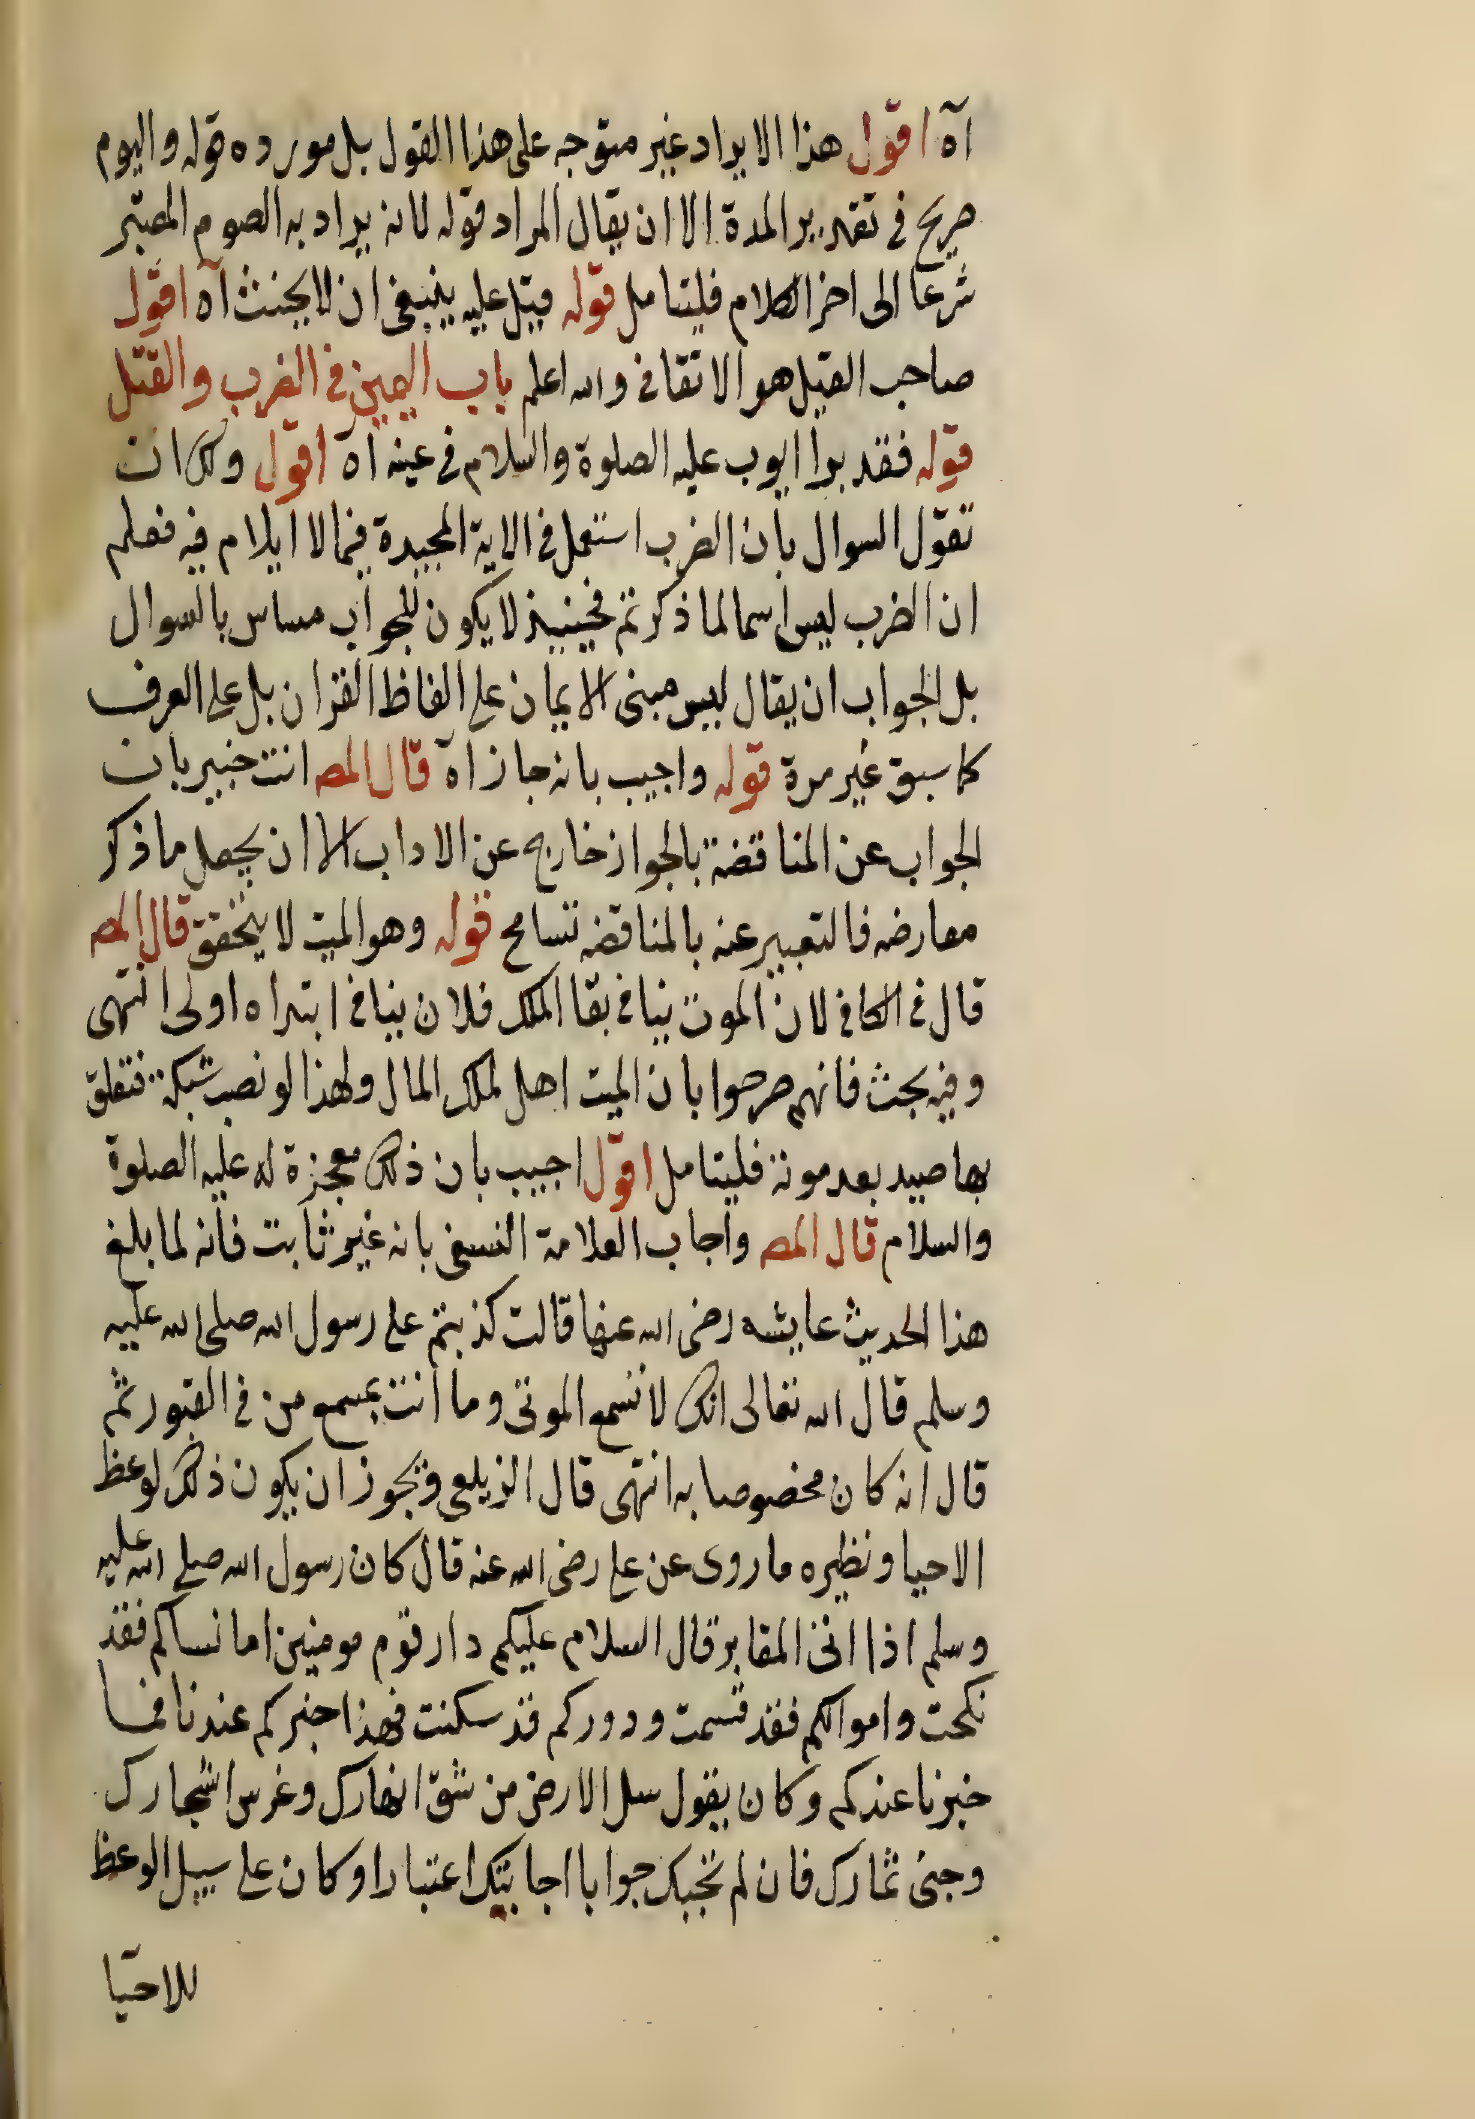 آه اقول هذا الايراد غير متوجه على هذا القول بل مورده قوله واليوم
صريح في تقدير المدة الا ان يقال المراد قوله لانه يراد به الصوم المعتبر
شرعا الى اخر الكلام فليتامل قوله قيل عليه ينبغي ان لا يحنث آه اقول
صاحب القيل هو الاتقاني والله اعلم باب اليمين في الضرب والقتل
قوله فقد برا ايوب عليه الصلوة والسلام في عينه آه اقول ولك ان
تقول السوال بان الضرب استعمل في الاية المجيدة فيما لا ايلام فيه فعلم
ان الضرب ليس اسما لما ذكرتم فحينيذ لا يكون للجواب مساس بالسوال
بل الجواب ان يقال ليس مبنى الايمان على الفاظ القران بل على العرف
كما سبق غير مرة قوله واجيب بانه جاز آه قال المص انت خبير بان
الجواب عن المناقضة بالجواز خارج عن الاداب الا ان يجعل ما ذكر
معارضه فالتعبير عنه بالمناقضه تسامح قوله وهو الميت لا يتحقق قال المص
قال في الكافي لان الموت ينافي بقا الملك فلان ينافي ابتداه اولى انتهى
وفيه بحث فانهم صرحوا بان الميت اهل لملك المال ولهذا لو نصب شبكة فتعلق
بها صيد بعد موته فليتامل اقول اجيب بان ذلك معجزة له عليه الصلوة
والسلام قال المص واجاب العلامة النسفي بانه غير ثابت فانه لما بلغ
هذا الحديث عايشه رضى الله عنها قالت كذبتم على رسول الله صلى الله عليه
وسلم قال الله تعالى انك لا تسمع الموتى وما انت بمسمع من في القبور ثم
قال انه كان مخصوصا به انتهى قال الزيلعي ويجوز ان يكون ذلك لوعظ
الاحيا ونظيره ما روى عن على رضى الله عنه قال كان رسول الله صلى الله عليه
وسلم اذا اتى المقابر قال السلام عليكم دار قوم مومنين اما نساكم فقد
نكحت واموالكم فقد قسمت ودوركم قد سكنت فهذا خبركم عندنا فما
خبرنا عندكم وكان يقول سل الارض من شق انهارك وغرس اشجارك
وجنى ثمارك فان لم تجبك جوابا اجابتك اعتبارا وكان على سبيل الوعظ
للاحيا